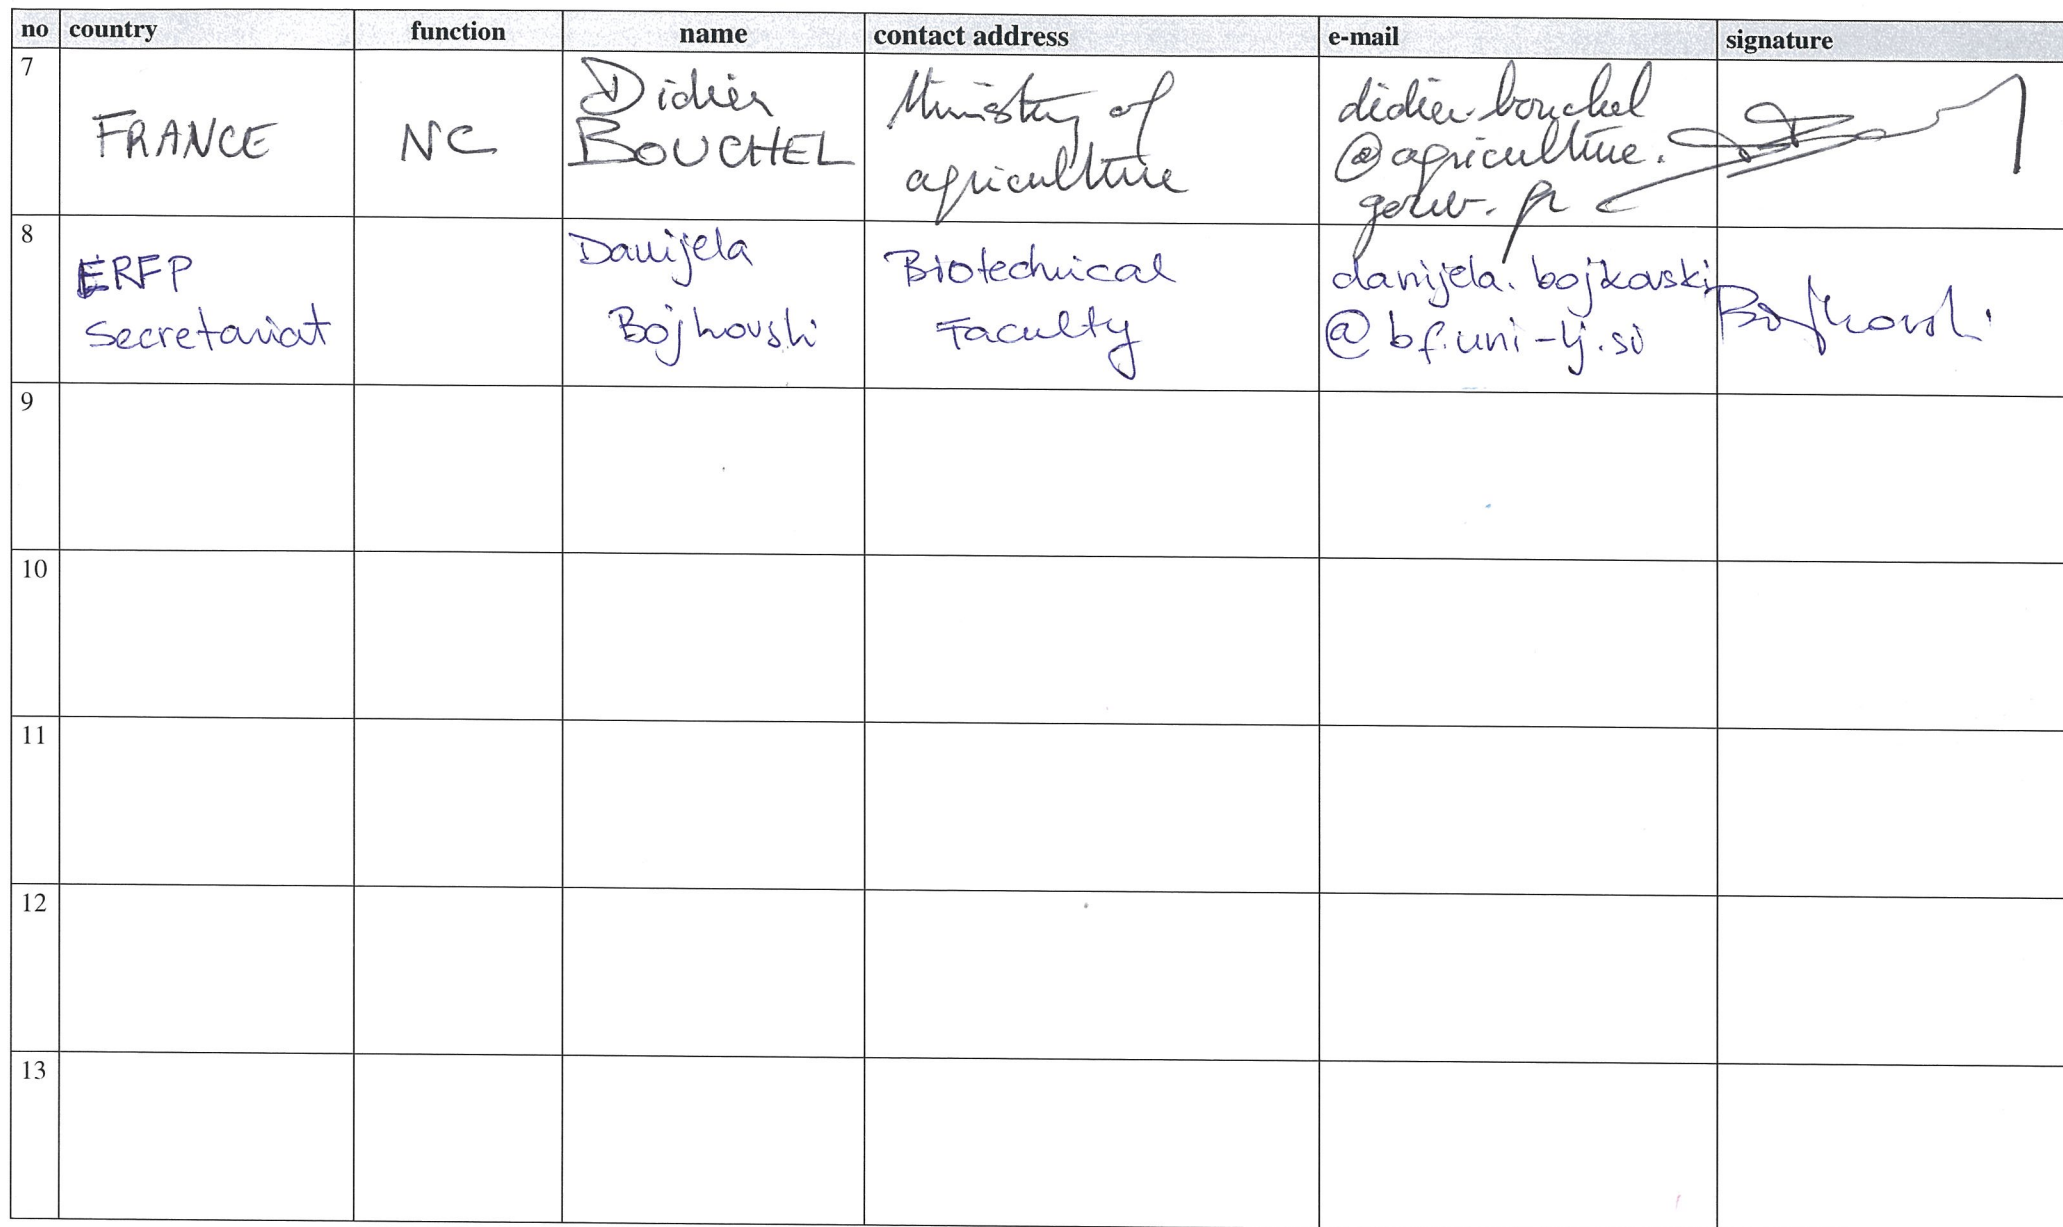 no country function name contact address e-mail signature
7
FRANCE
NC
Didier
BOUCHEL
Ministry of
agriculture
didier.bouchel
@agriculture.
gouv.fr
8
ERFP
Secretariat
Danijela
Bojkovski
Biotechnical
Faculty
danijela.bojkovski
@bf.uni-lj.si
Bojkovski
9
10
11
12
13